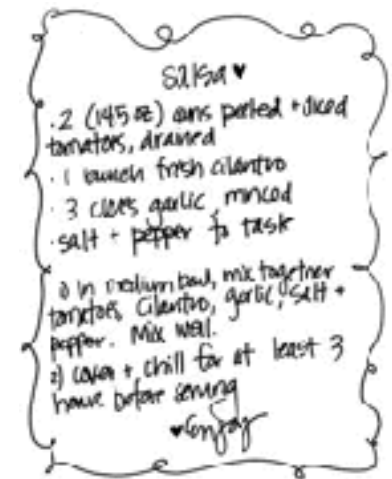 salsa ♥
· 2 (145 oz) cans peeled + diced
tomatoes, drained
· 1 bunch fresh cilantro
· 3 cloves garlic, minced
· salt + pepper to taste
1) In medium bowl, mix together
tomatoes, cilantro, garlic, salt +
pepper. Mix well.
2) cover + chill for at least 3
hours before serving
♥ enjoy